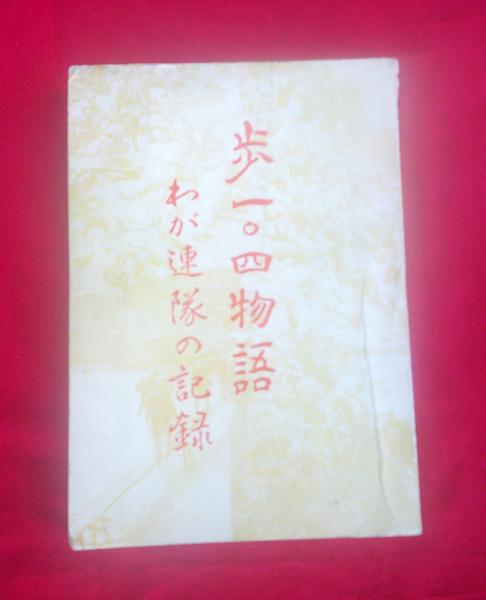 歩一〇四物語
わが連隊の記録